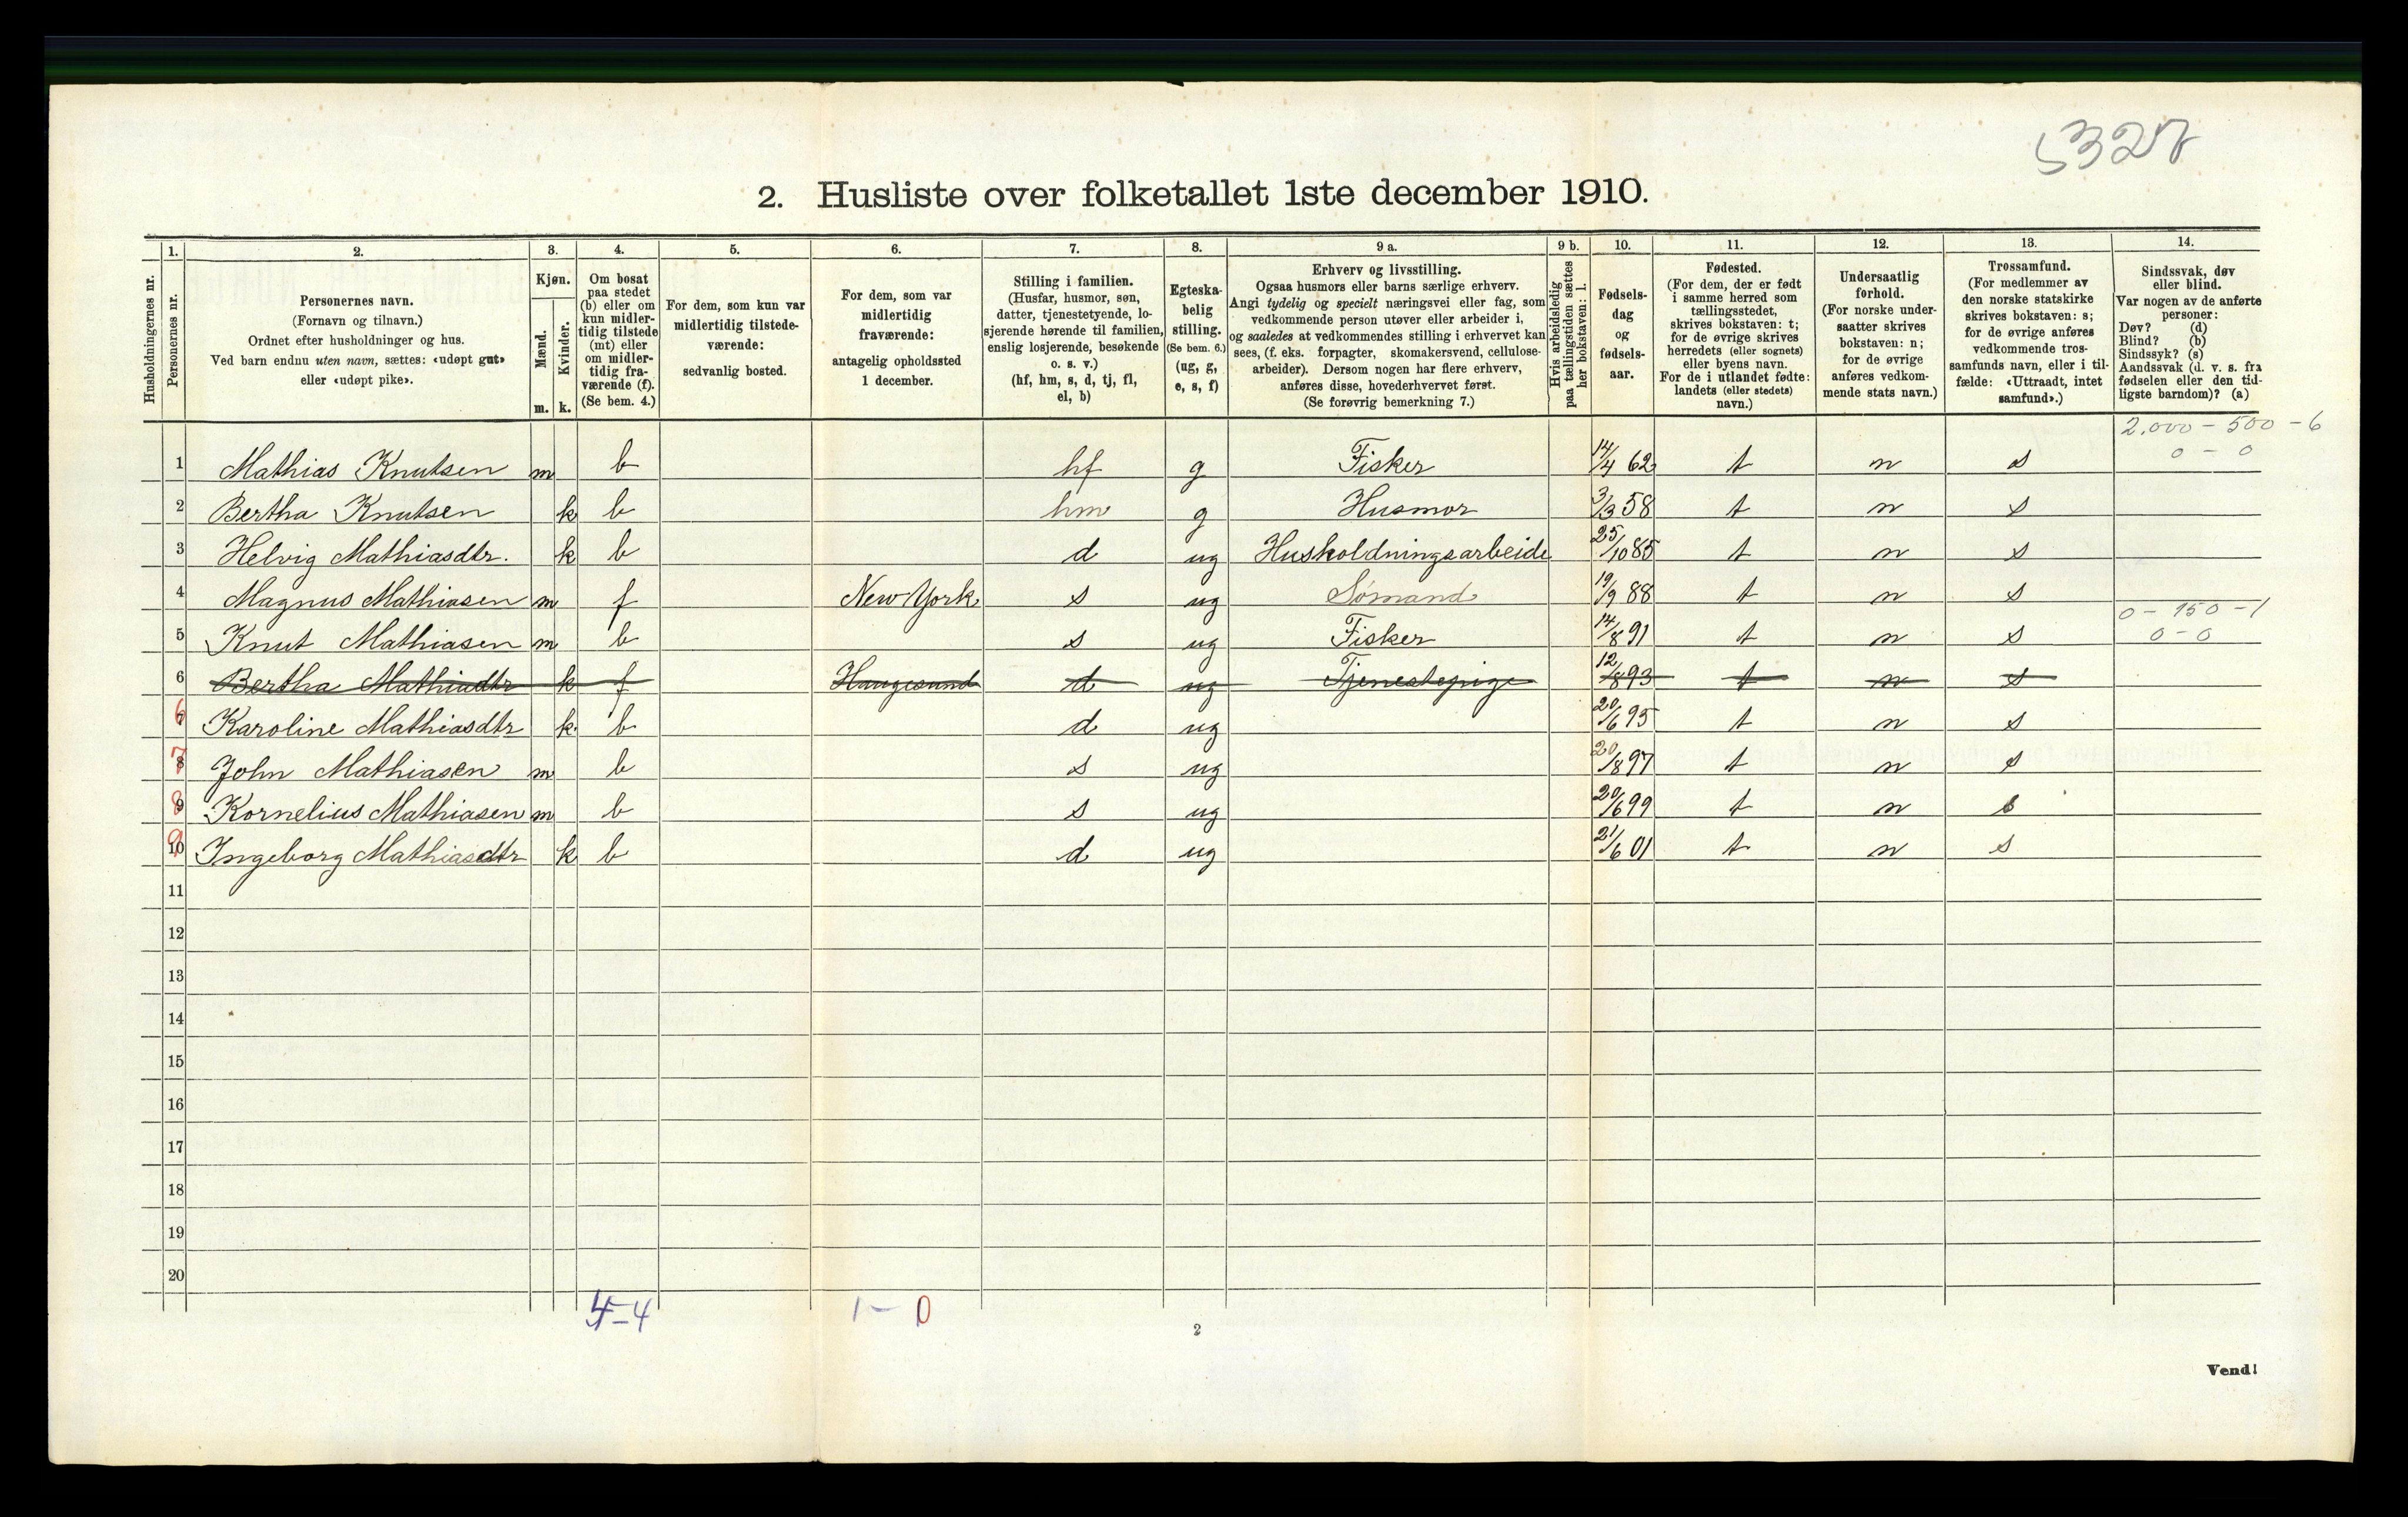 5328
2. Husliste over folketallet 1ste december 1910.
1. 2. 3. 4. 5. 6. 7. 8. 9 a. 9 b. 10. 11. 12. 13. 14.
Husholdningernes nr.
Personernes nr.
Personernes navn.
(Fornavn og tilnavn.)
Ordnet efter husholdninger og hus.
Ved barn endnu uten navn, sættes: «udøpt gut»
eller «udøpt pike».
Kjøn.
Mænd.
Kvinder.
m. k.
Om bosat
paa stedet
(b) eller om
kun midler-
tidig tilstede
(mt) eller
om midler-
tidig fra-
værende (f).
(Se bem. 4.)
For dem, som kun var
midlertidig tilstede-
værende:
sedvanlig bosted.
For dem, som var
midlertidig
fraværende:
antagelig opholdssted
1 december.
Stilling i familien.
(Husfar, husmor, søn,
datter, tjenestetyende, lo-
sjerende hørende til familien,
enslig losjerende, besøkende
o. s. v.)
(hf, hm, s, d, tj, fl,
el, b)
Egteska-
belig
stilling.
(Se bem. 6.)
(ug, g,
e, s, f)
Erhverv og livsstilling.
Ogsaa husmors eller barns særlige erhverv.
Angi tydelig og specielt næringsvei eller fag, som
vedkommende person utøver eller arbeider i,
og saaledes at vedkommendes stilling i erhvervet kan
sees, (f. eks. forpagter, skomakersvend, cellulose-
arbeider). Dersom nogen har flere erhverv,
anføres disse, hovederhvervet først.
(Se forøvrig bemerkning 7.)
Hvis arbeidsledig
paa tællingstiden sættes
her bokstaven: l.
Fødsels-
dag
og
fødsels-
aar.
Fødested.
(For dem, der er født
i samme herred som
tællingsstedet,
skrives bokstaven: t;
for de øvrige skrives
herredets (eller sognets)
eller byens navn.
For de i utlandet fødte:
landets (eller stedets)
navn.)
Undersaatlig
forhold.
(For norske under-
saatter skrives
bokstaven: n;
for de øvrige
anføres vedkom-
mende stats navn.)
Trossamfund.
(For medlemmer av
den norske statskirke
skrives bokstaven: s;
for de øvrige anføres
vedkommende tros-
samfunds navn, eller i til-
fælde: «Uttraadt, intet
samfund».)
Sindssvak, døv
eller blind.
Var nogen av de anførte
personer:
Døv? (d)
Blind? (b)
Sindssyk? (s)
Aandssvak (d. v. s. fra
fødselen eller den tid-
ligste barndom)? (a)
2.000 - 500 - 6
0 - 0
1 Mathias Knutsen m b hf g Fisker 14/4 62 t n s
2 Bertha Knutsen k b hm g Husmor 3/3 58 t n s
3 Helvig Mathiasdtr. k b d ug Husholdningsarbeide 25/10 85 t n s
4 Magnus Mathiasen m f New York s ug Sømand 19/9 88 t n s
0 - 150 - 1
0 - 0
5 Knut Mathiasen m b s ug Fisker 14/8 91 t n s
6 Bertha Mathiadtr k f Haugesund d ug Tjenestepige 12/8 93 t n s
6 7 Karoline Mathiasdtr k b d ug 20/6 95 t n s
7 8 John Mathiasen m b s ug 20/8 97 t n s
8 9 Kornelius Mathiasen m b s ug 20/6 99 t n s
9 10 Ingeborg Mathiasdtr k b d ug 21/6 01 t n s
11
12
13
14
15
16
17
18
19
20
4-4 1 - 0
2
Vend!